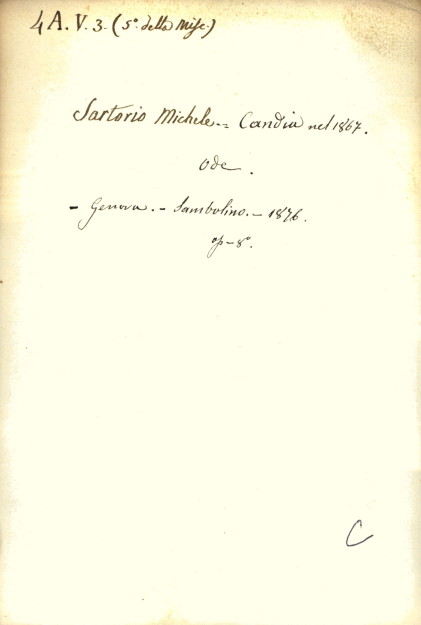 4 A. V. 3. (5° della Misc.)
Sartorio Michele.= Candia nel 1867.
Ode.
- Genova.- Sambolino.- 1876.
op-8°.
C